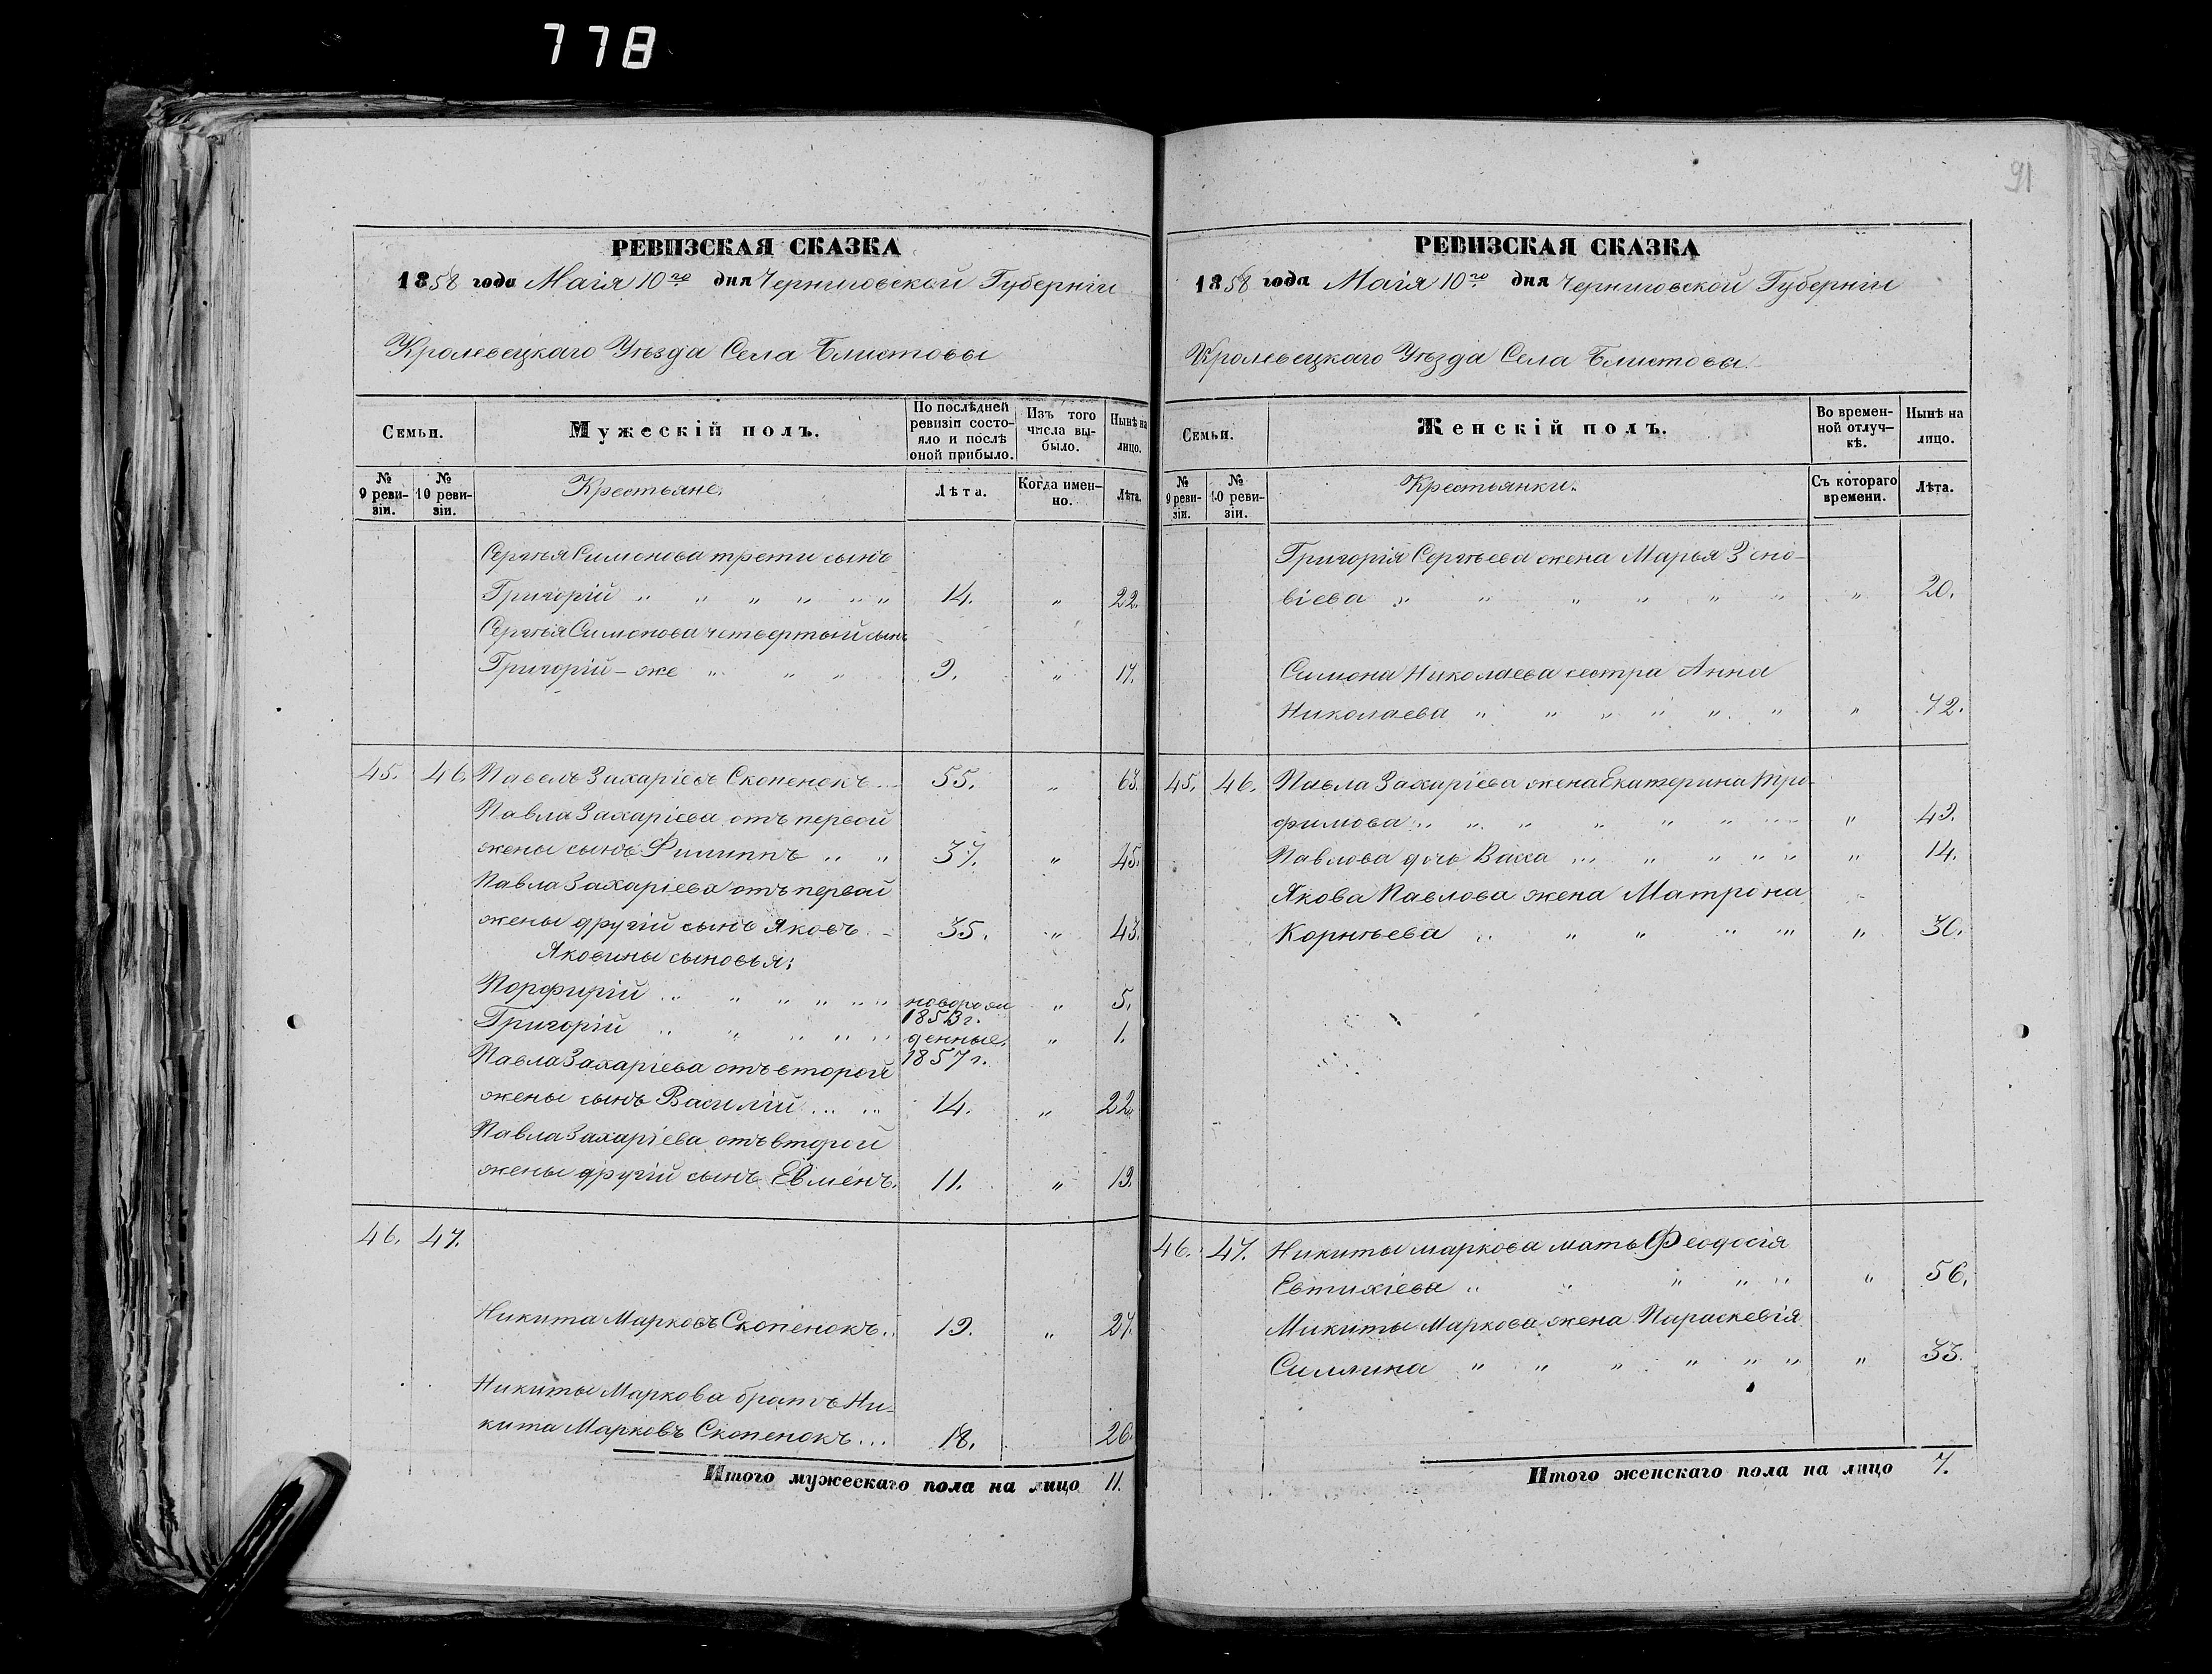 778
91
РЕВИЗСКАЯ СКАЗКА
1858 года Маія 10го дня Черниговской Губерніи
Кролевецкаго Уѣзда Села Блистовы
Семьи.
Мужескій полъ.
По послѣдней ревизіи состояло и послѣ оной прибыло.
Изъ того числа выбыло.
Нынѣ на лицо.
№ 9 ревизіи.
№ 10 ревизіи.
Крестьяне.
Лѣта.
Когда именно.
Лѣта.
Сергѣя Симонова трети сынъ
Григорій " " " " " " 14. " 22.
Сергѣя Симонова четвертый сынъ
Григорій-же " " " 9. " 17.
45. 46. Павелъ Захаріевъ Скопенокъ 55. " 63.
Павла Захаріева отъ первой
жены сынъ Филиппъ " " 37. " 45.
Павла Захаріева отъ первой
жены другій сынъ Яковъ 35. " 43.
Яковины сыновья:
Порфирій " " " " " " новорож 1853 г. " 5.
Григорій " " " " " денные. 1857 г. " 1.
Павла Захаріева отъ второй
жены сынъ Василій 14. " 22.
Павла Захаріева отъ второй
жены другій сынъ Евменъ. 11. " 19.
46. 47.
Никита Марковъ Скопенокъ 19. " 27.
Никиты Маркова братъ Ни-
кита Марковъ Скопенокъ... 18. 26.
Итого мужескаго пола на лицо 11.
РЕВИЗСКАЯ СКАЗКА
1858 года Маія 10го дня Черниговской Губерніи
Кролевецкаго Уѣзда Села Блистовы.
Семьи.
Женскій полъ.
Во временной отлучкѣ.
Нынѣ на лицо.
№ 9 ревизіи.
№ 10 ревизіи.
Крестьянки.
Съ котораго времени.
Лѣта.
Григорія Сергѣева жена Марья Зено-
віева " " " " " " " 20.
Симона Николаева сестра Анна
Николаева " " " " " " " 72.
45. 46. Павла Захаріева жена Екатерина Тро-
фимова " " " " " " " 49.
Павлова дочь Васса " " " " " 14.
Якова Павлова жена Матрона
Корнѣева " " " " " " 30.
46. 47. Никиты Маркова мать Феодосія
Евтихіева " " " " " " 56.
Микиты Маркова жена Параскевія
Силлина " " " " " " " 33.
Итого женскаго пола на лицо 7.